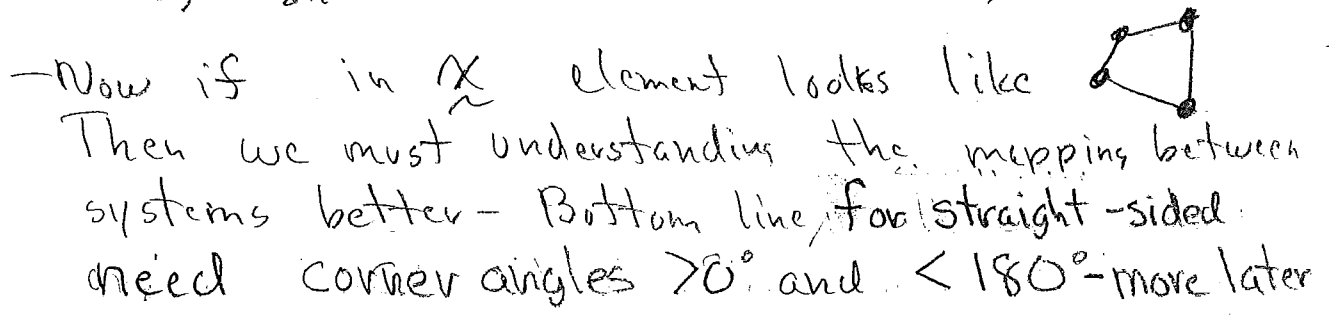 -Now if in x element looks like
Then we must understanding the mapping between
systems better - Bottom line, for straight-sided
need corner angles >0° and <180° - more later